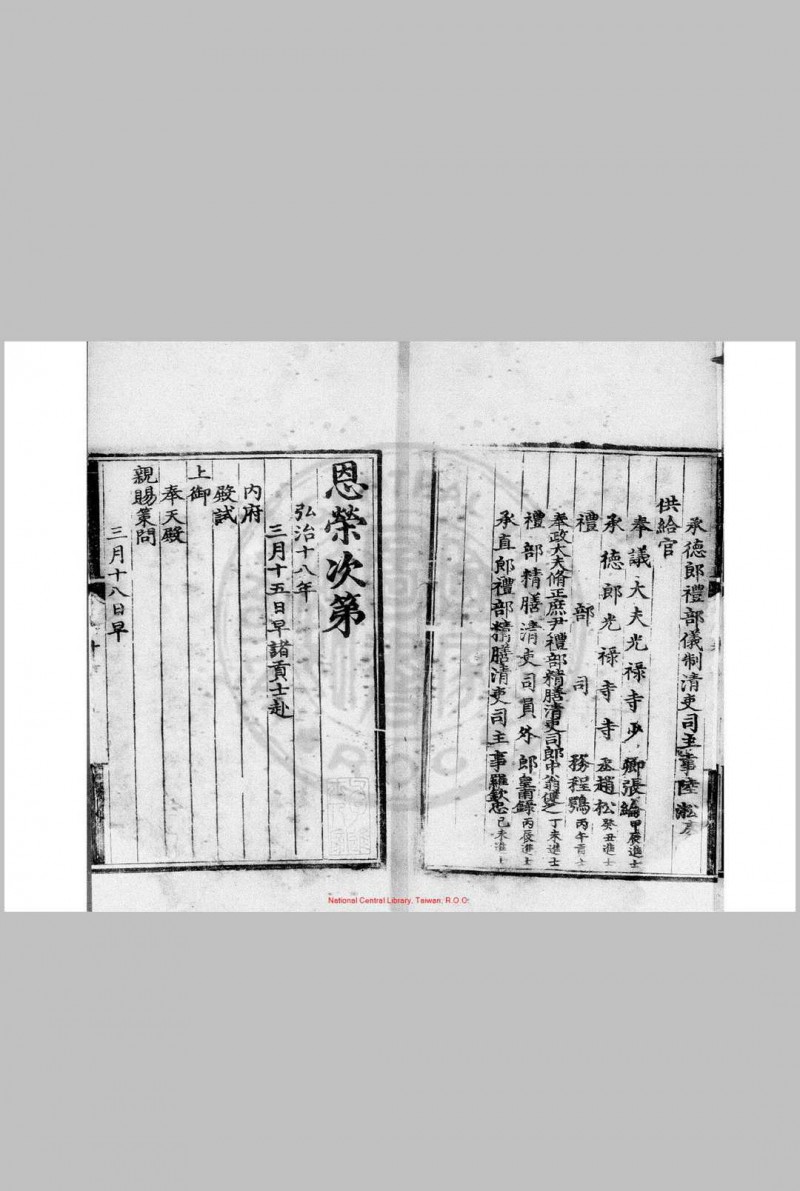 承德郎禮部儀制清吏司主事陸淞
供給官
奉議大夫光祿寺少卿張綸甲辰進士
承德郎光祿寺寺丞趙松癸丑進士
禮部司務程鶚丙午貢士
奉政大夫脩正庶尹禮部精膳清吏司郎中翁健之丁未進士
禮部精膳清吏司員外郎皇甫錄丙辰進士
承直郎禮部精膳清吏司主事羅欽忠己未進士
恩榮次第
弘治十八年
三月十五日早諸貢士赴
內府
殿試
上御
奉天殿
親賜策問
三月十八日早
National Central Library, Taiwan, R.O.C.